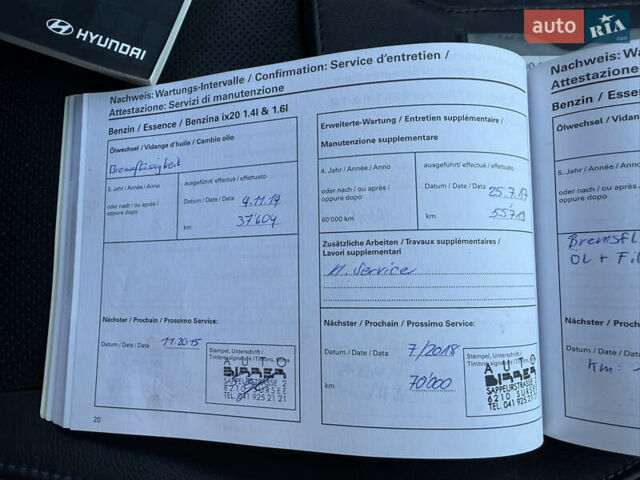 HYUNDAI
auto RIA
.com
Nachweis: Wartungs-Intervalle / Confirmation: Service d'entretien /
Attestazione: Servizi di manutenzione
Benzin / Essence / Benzina ix20 1.4l & 1.6l
Ölwechsel / Vidange d'huile / Cambio olio
Bremsflüssigkeit
3. Jahr / Année / Anno
oder nach / ou après /
oppure dopo
ausgeführt / effectué / effettuato
Datum / Date / Data 4.11.14
km 37'604
Nächster / Prochain / Prossimo Service:
Datum / Date / Data 11.2015
Stempel, Unterschrift /
Timbre/signature / Timbro, firma
AUTO
BIRRER
SAPPEURSTRASSE 2
6210 SURSEE
TEL. 041 925 21 21
20
Erweiterte-Wartung / Entretien supplémentaire /
Manutenzione supplementare
4. Jahr / Année / Anno
oder nach / ou après /
oppure dopo
60'000 km
ausgeführt / effectué / effettuato
Datum / Date / Data 25.7.17
km 55'713
Zusätzliche Arbeiten / Travaux supplémentaires /
Lavori supplementari
kl. Service
Nächster / Prochain / Prossimo Service:
Datum / Date / Data 7/2018
km 70'000
Stempel, Unterschrift /
Timbre/signature / Timbro, firma
AUTO
BIRRER
SAPPEURSTRASSE 2
6210 SURSEE
TEL. 041 925 21 21
Nachweis: Wartun
Attestazione: Se
Benzin / Essence /
Ölwechsel / Vidang
5. Jahr / Année / Anno
oder nach / ou après
oppure dopo
Bremsfl
Öl + Fil
Nächster / Prochain
Datum / Date / Data
km: